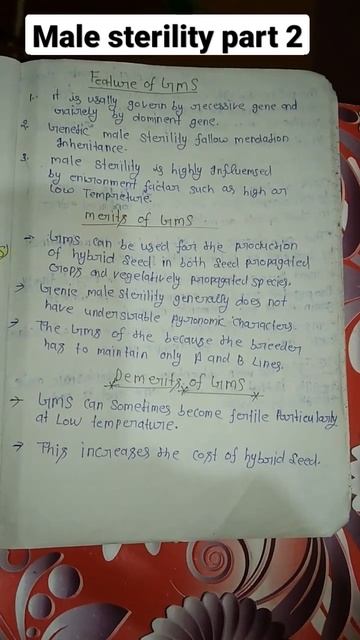 Male sterility part 2
Feature of GMS
1. it is usally govern by recessive gene and
rairely by dominent gene.
2. Genetic male sterility fallow mendation
inheritance.
3. male sterility is highly influensed
by environment factar such as high or
low Tempreture.
merits of GMS
→ GMS can be used for the production
of hybrid seed in both seed propagated
crops and vegelatively propagated species.
→ Genic male sterility generally does not
have undersirable Agronomic characters.
→ The GMS of the because the breeder
has to maintain only A and B Lines.
Demerits of GMS
→ GMS can sometimes become fertile Particularly
at Low temperature.
→ This increases the cost of hybrid seed.